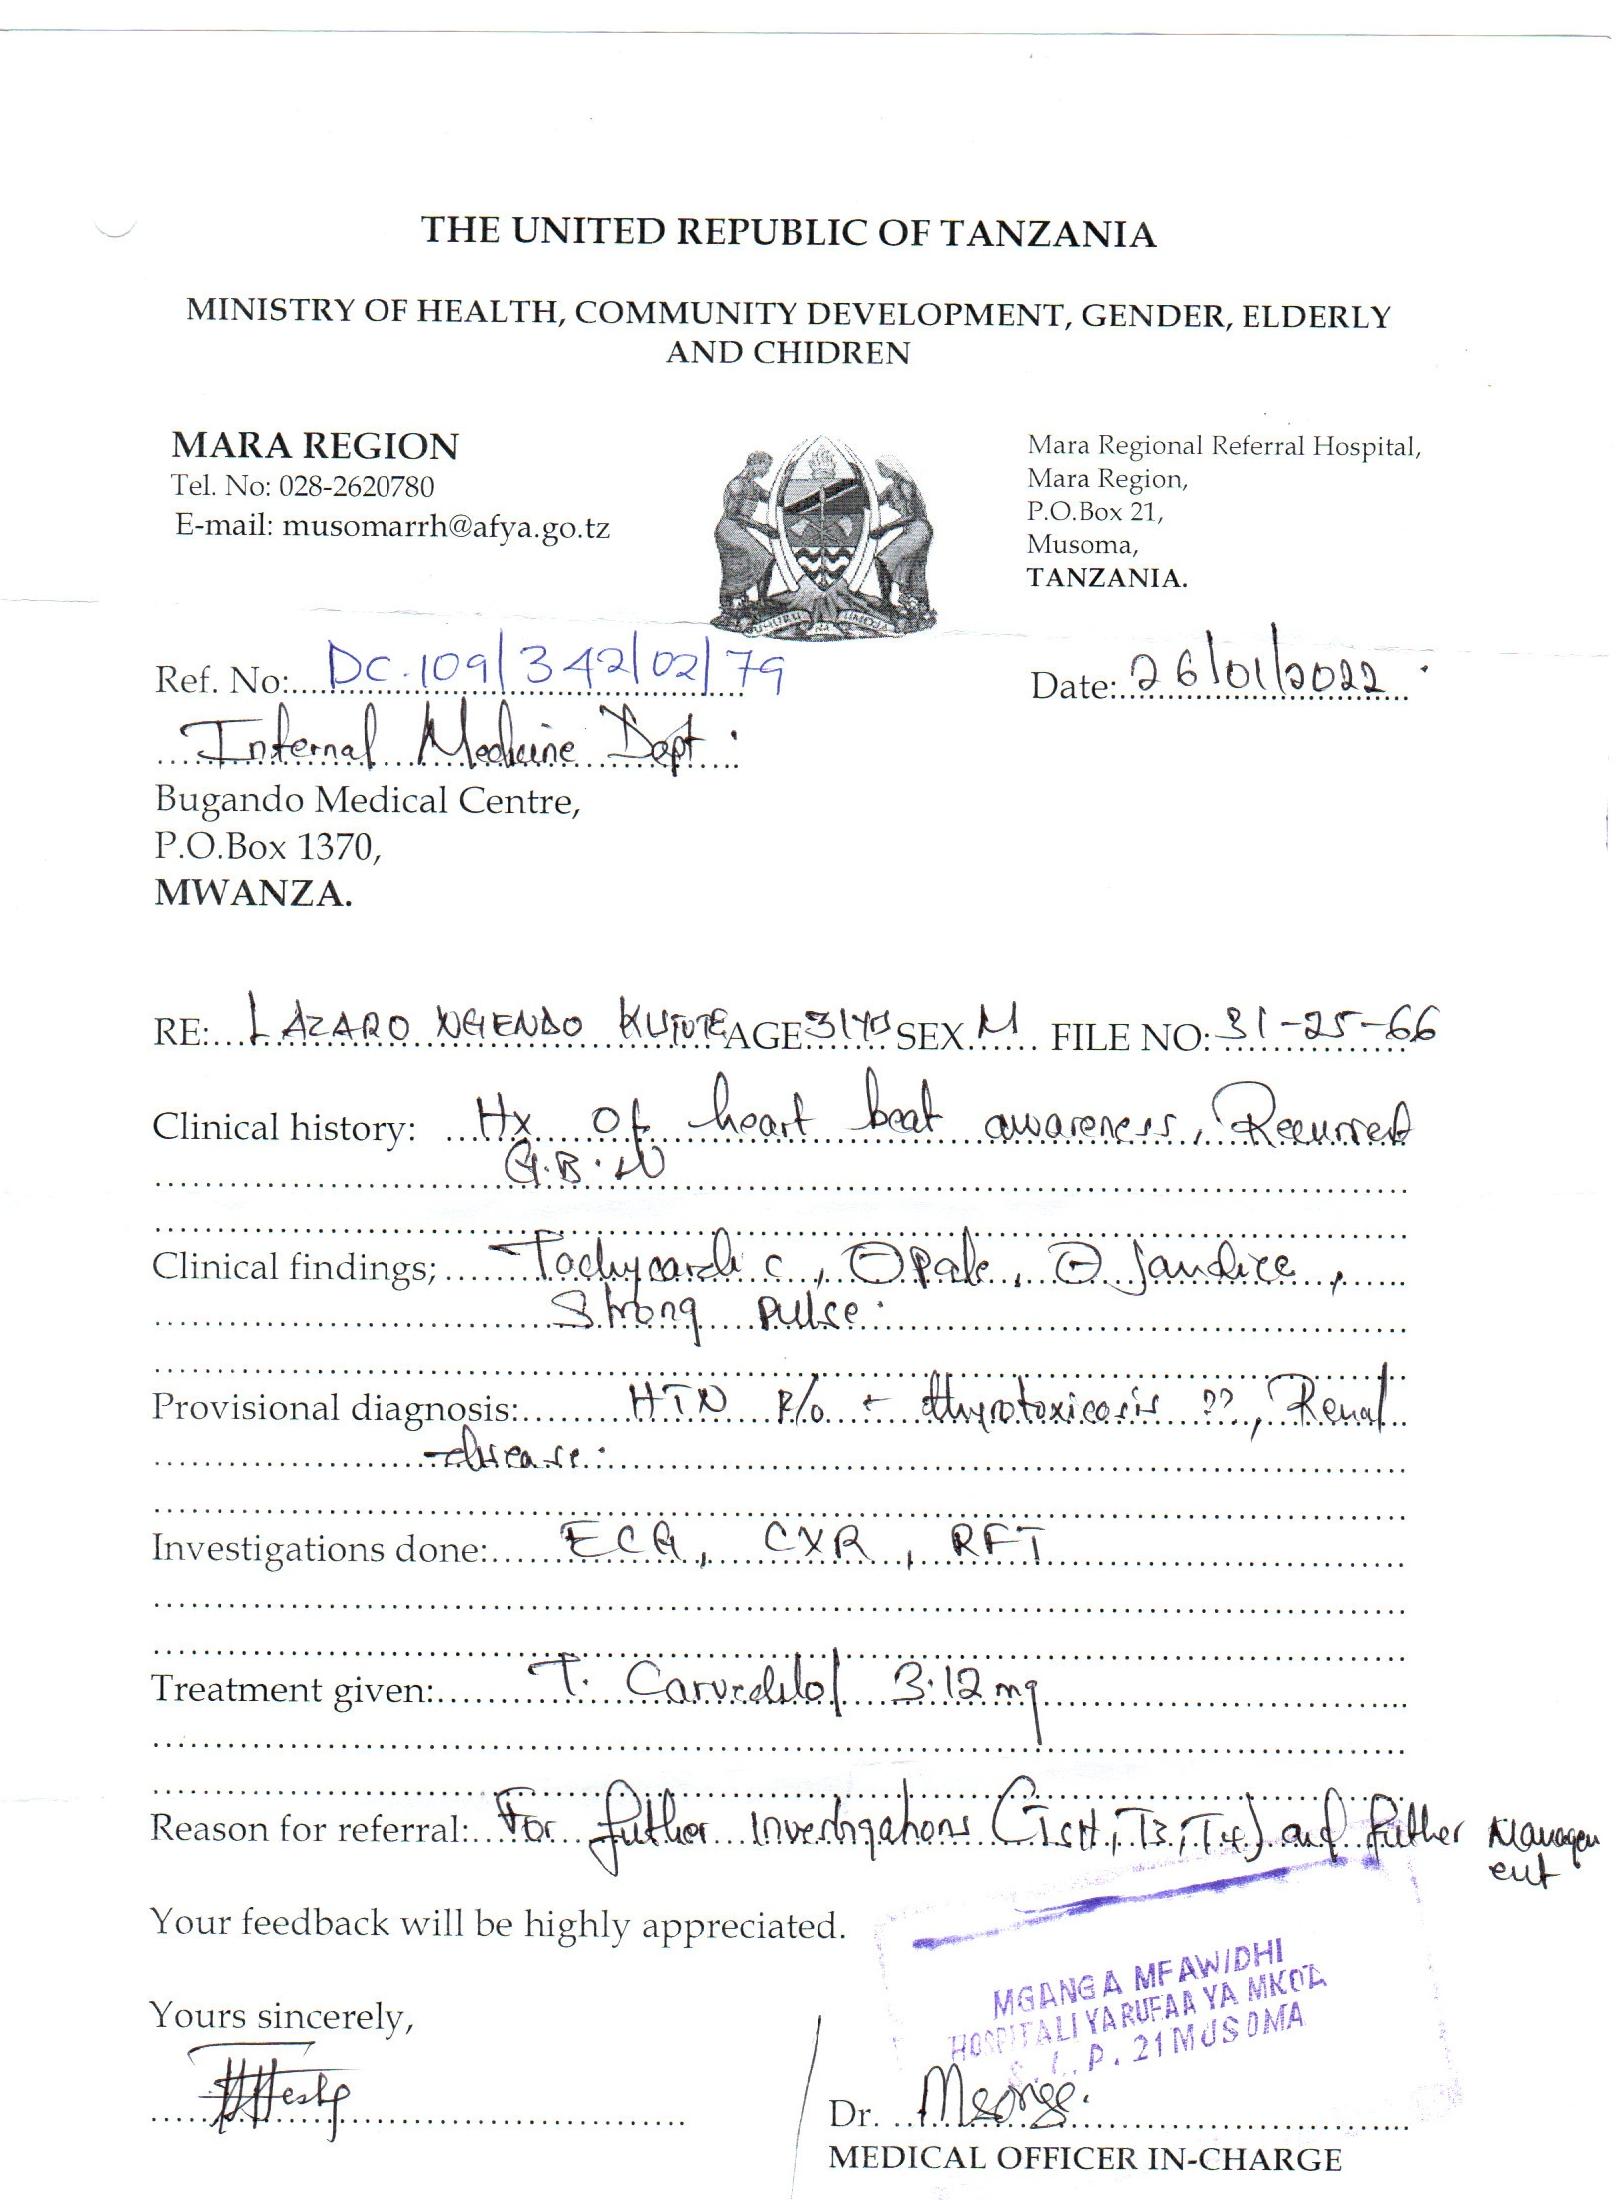 THE UNITED REPUBLIC OF TANZANIA
MINISTRY OF HEALTH, COMMUNITY DEVELOPMENT, GENDER, ELDERLY
AND CHIDREN
MARA REGION
Tel. No: 028-2620780
E-mail: musomarrh@afya.go.tz
Mara Regional Referral Hospital,
Mara Region,
P.O.Box 21,
Musoma,
TANZANIA.
UHURU NA UMOJA
Ref. No: DC.109/342/02/79
Date: 26/01/2022
Internal Medicine Dept.
Bugando Medical Centre,
P.O.Box 1370,
MWANZA.
RE: LAZARO NGENDO AGE 31 SEX M FILE NO: 31-25-66
Clinical history: Hx of heart beat awareness, Recurrent
G.B.
Clinical findings; Tachycardic, ⊖ pale, ⊖ jaundice,
Strong pulse.
Provisional diagnosis: HTN R/o - thyrotoxicosis ??, Renal
disease.
Investigations done: ECG, CXR, RFT
Treatment given: T. Carvedilol 3.12mg
Reason for referral: For futher investigations (TSH, T3, T4) and futher Managem
ent
Your feedback will be highly appreciated.
Yours sincerely,
MGANGA MFAWIDHI
HOSPITALI YA RUFAA YA MKOA
S.L.P. 21 MUSOMA
Dr.
MEDICAL OFFICER IN-CHARGE